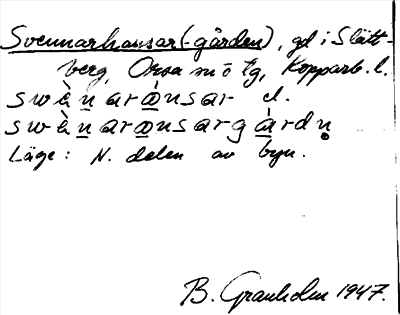 Svennarhansar(-gården), gd i Slätt-
berg, Orsa sn ö tg, Kopparb. l.
swènaránsar el.
swènaránsargàrdn̥
Läge: N. delen av byn.
B. Granholm 1947.